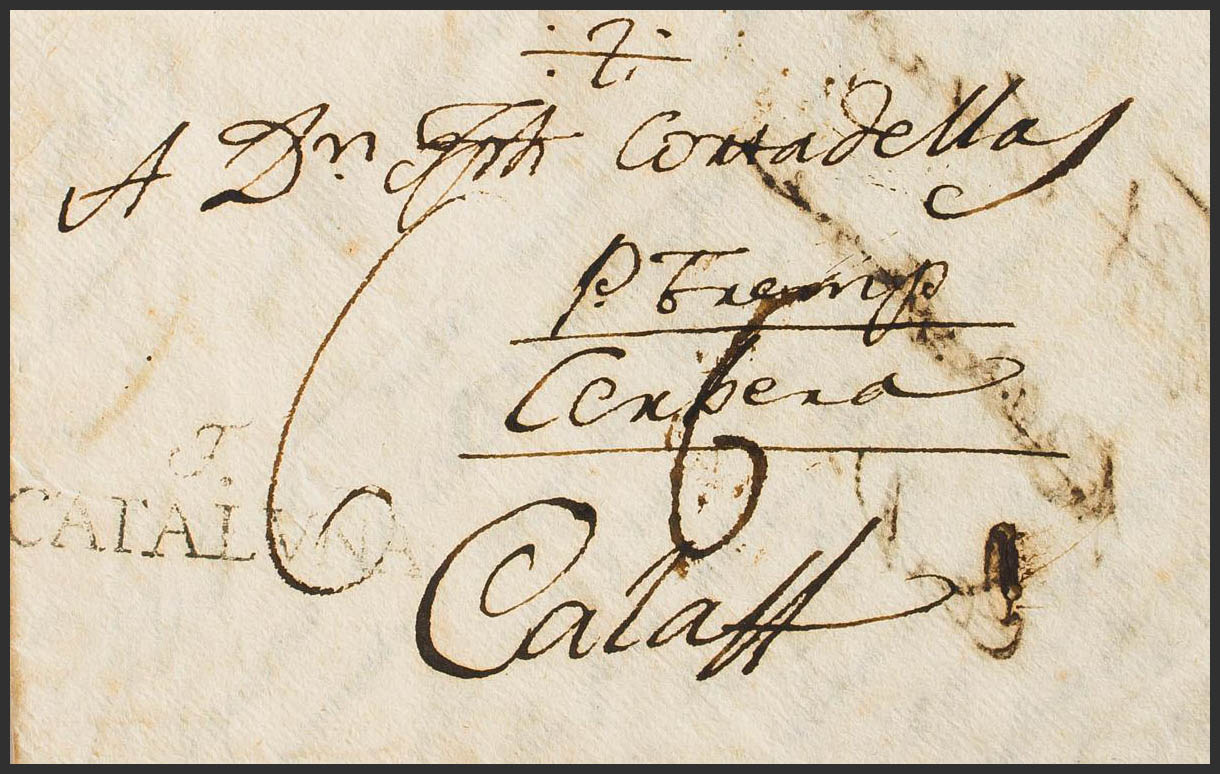 A Dn Jph Cortadellas
P. Tremp
Cerbera
6
T.
CATALUÑA
Calaff